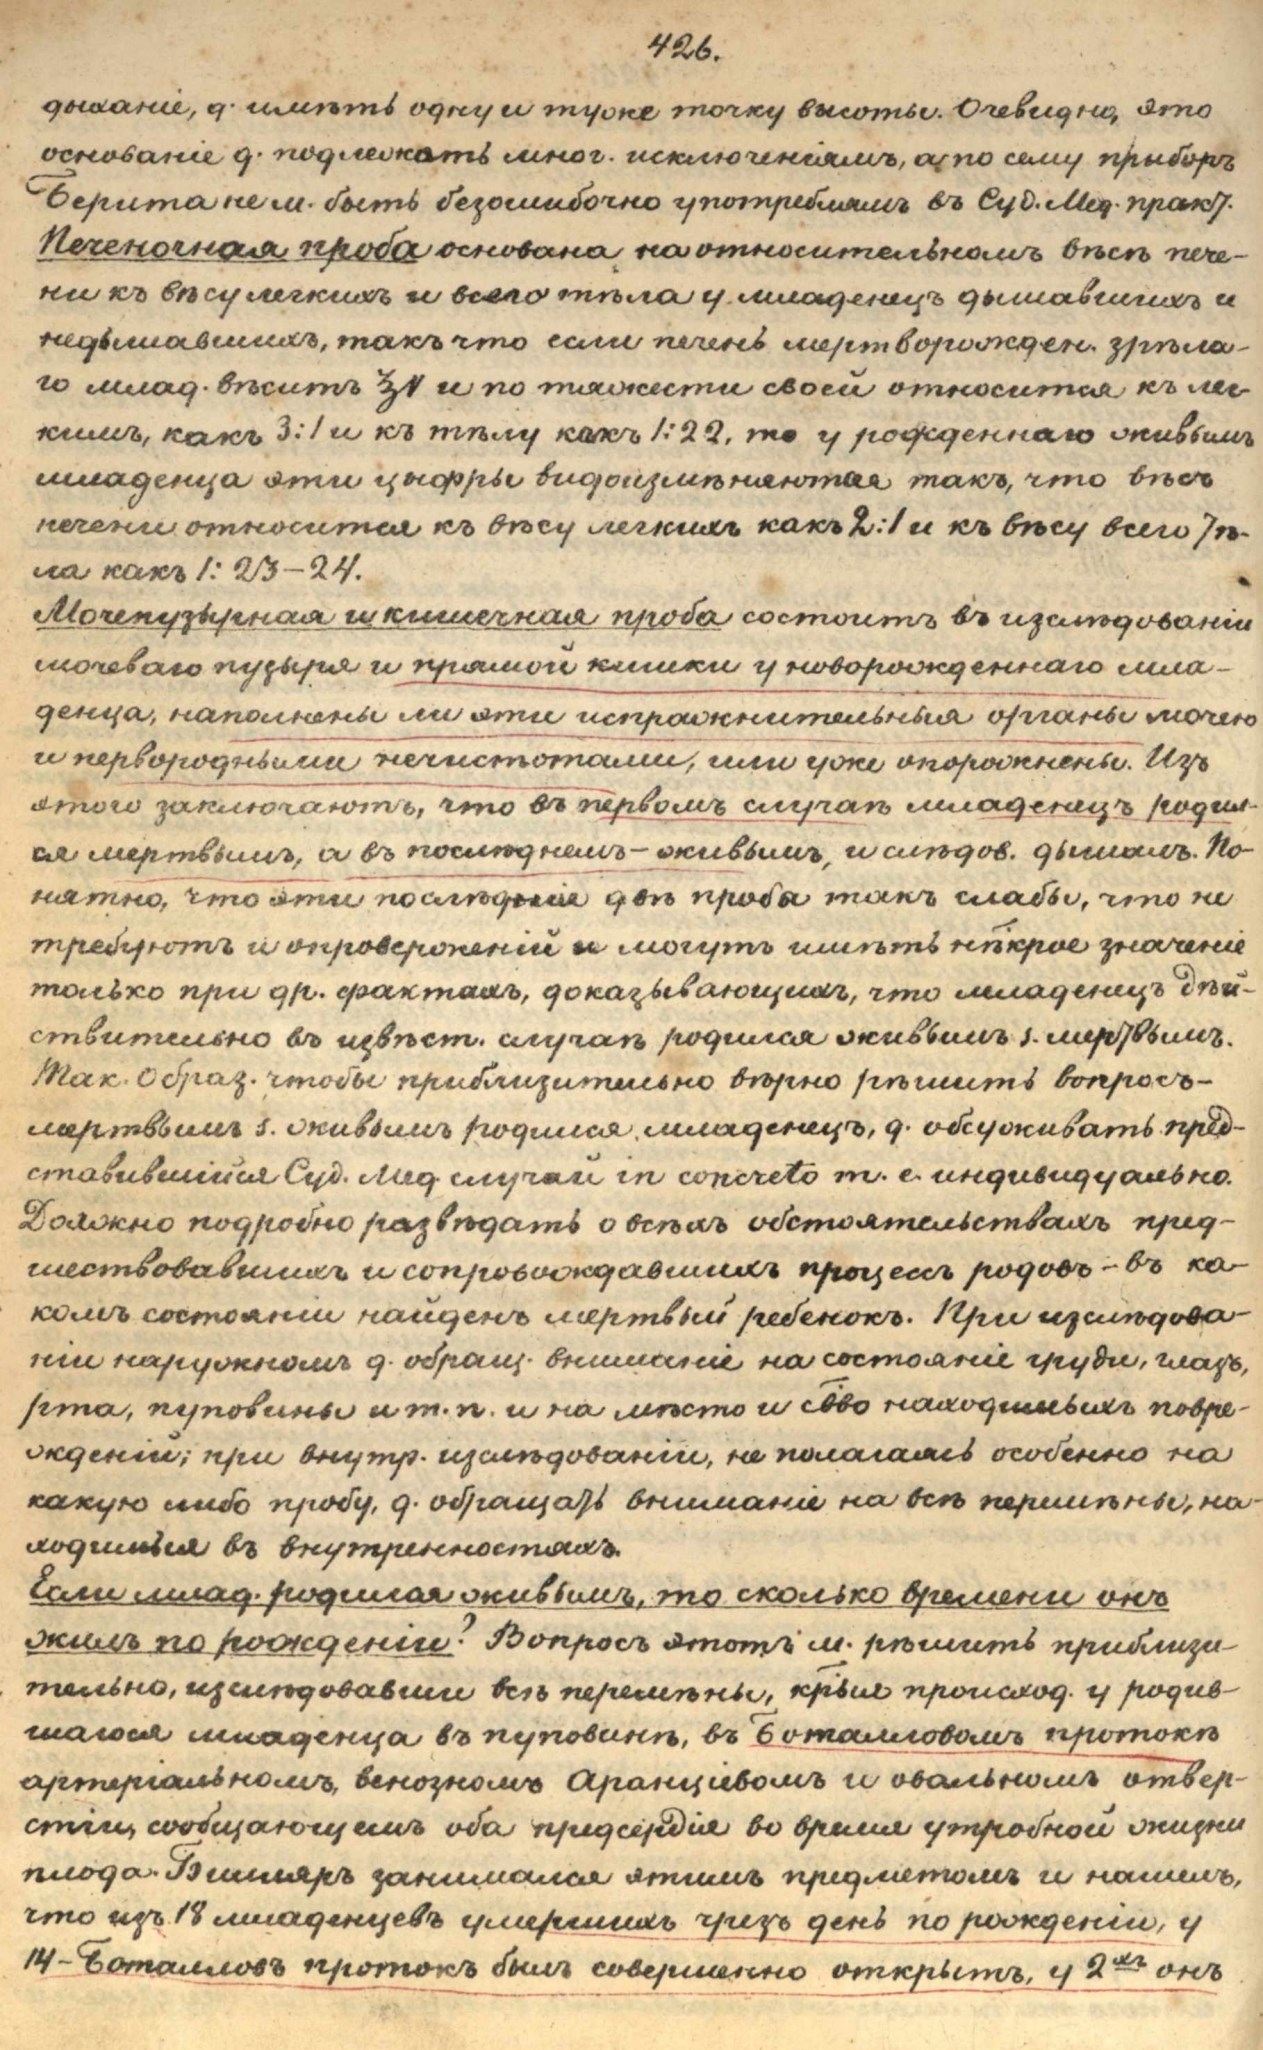 426.
дыханіе, д. имѣть одну и туже точку высоты. Очевидно, это
основаніе д. подлежать мног. исключеніямъ, а по сему приборъ
Бернта не м. быть безошибочно употребляемъ въ Суд. Мед. практ.
Печеночная проба основана на относительномъ вѣсѣ пече-
ни къ вѣсу легкихъ и всего тѣла у младенецъ дышавшихъ и
недышавшихъ, такъ что если печень мертворожден. зрѣла-
го млад. вѣситъ ℥v и по тяжести своей относится къ лег-
кимъ, какъ 3:1 и къ тѣлу какъ 1:22, то у рожденнаго живымъ
младенца эти цыфры видоизмѣняются такъ, что вѣсъ
печени относится къ вѣсу легкихъ какъ 2:1 и къ вѣсу всего тѣ-
ла какъ 1: 23–24.
Мочепузырная и кишечная проба состоитъ въ изслѣдованіи
мочеваго пузыря и прямой кишки у новорожденнаго мла-
денца, наполнены ли эти испражнительныя органы мочею
и первородными нечистотами, или уже опорожнены. Изъ
этого заключаютъ, что въ первомъ случаѣ младенецъ родил-
ся мертвымъ, а въ послѣднемъ – живымъ, и слѣдов. дышалъ. По-
нятно, что эти послѣдніе двѣ проба такъ слабы, что не
требуютъ и опроверженій и могутъ имѣть нѣкрое значеніе
только при др. фактахъ, доказывающихъ, что младенецъ дѣй-
ствительно въ извѣст. случаѣ родился живымъ s. мертвымъ.
Так. Образ. чтобы приблизительно вѣрно рѣшить вопросъ –
мертвымъ s. живымъ родился младенецъ, д. обсуживать пред-
ставившійся Суд. Мед. случай in concreto т. е. индивидуально.
Должно подробно развѣдать о всѣхъ обстоятельствахъ пред-
шествовавшихъ и сопровождавшихъ процессъ родовъ – въ ка-
комъ состояніи найденъ мертвый ребенокъ. При изслѣдова-
ніи наружномъ д. обращ. вниманіе на состояніе груди, глазъ,
рта, пуповины и т. п. и на мѣсто и св̃во находимыхъ повре-
жденій; при внутр. изслѣдованіи, не полагаясь особенно на
какую либо пробу, д. обращать вниманіе на всѣ перемѣны, на-
ходимыя въ внутренностяхъ.
Если млад. родился живымъ, то сколько времени онъ
жилъ по рожденіи? Вопросъ этотъ м. рѣшить приблизи-
тельно, изслѣдовавши всѣ перемѣны, крыя происход. у родив-
шагося младенца въ пуповинѣ, въ Боталловомъ протокѣ
артеріальномъ, венозномъ Аранціевомъ и овальномъ отвер-
стіи, сообщающемъ оба предсердія во время утробной жизни
плода. занимался этимъ предметомъ и нашелъ,
что изъ 18 младенцевъ умершихъ чрезъ день по рожденіи, у
14 – Боталловъ протокъ былъ совершенно открытъ, у 2хъ онъ